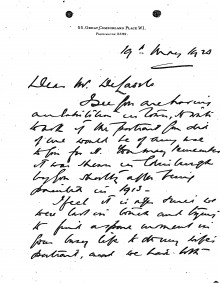 25, GREAT CUMBERLAND PLACE. W.1.
PADDINGTON
19th May 1920
Dear Mr. De Laszlo
I see you are having
an exhibition in Town, & write
to ask if the portrait you did
of me would be of any use
to you for it. You may remember
it was shewn in Edinburgh
by you shortly after being
in 1913.
I feel it is ages since we
were last in touch and
to find a spare moment in
your busy life to do my wife's
portrait, and we have both